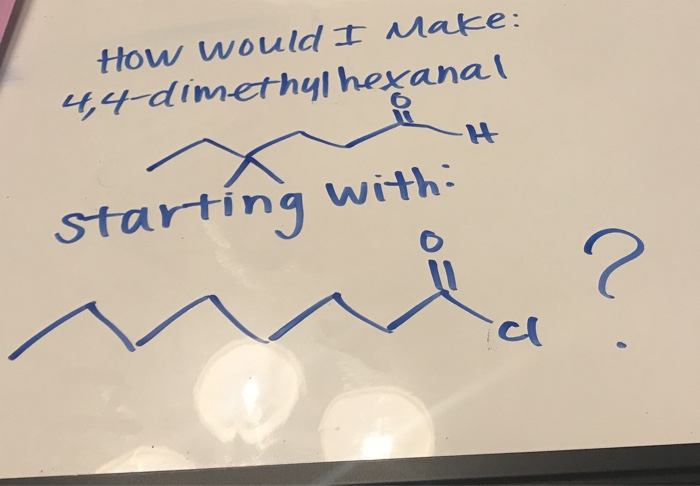 How Would I Make:
4,4-dimethylhexanal
O
H
starting with:
O
Cl
?